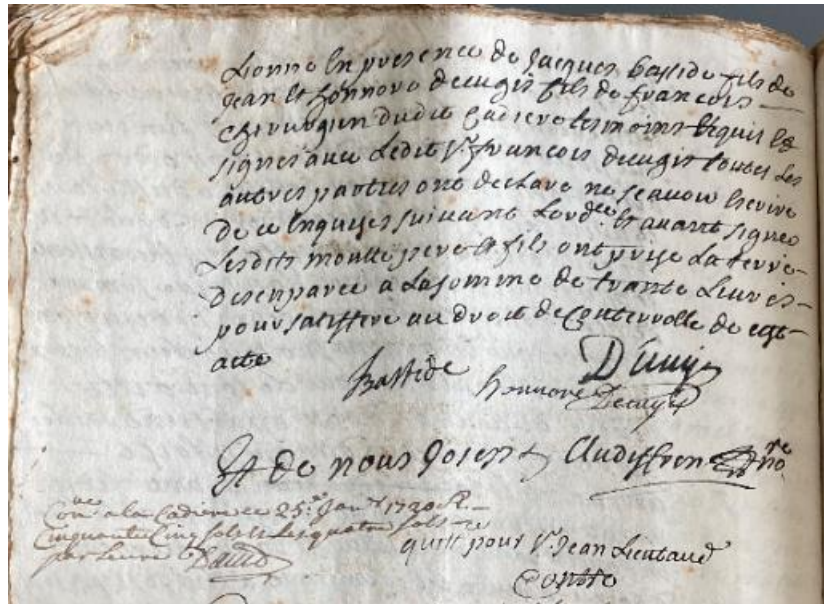 Lionne En presence de Jacques bastide fils de
Jean Et honnoré decugis fils de francois
chirurgien dudit Cadiere tesmoins Requis Et
signés avec Ledit Sr. francois decugis toutes Les
autres parties ont declaré ne scavoir Escrire
de ce Enquises suivant Lordce. Et avant signer
Lesdits moutte pere Et fils ont prise La terre
desemparée a La somme de trante Livres
pour satisffere au droit de Conterrolle de cest
acte
Bastide Decugis
honnore Decugis
Et de nous Joseph Audiffren nore
Conlé a la Cadiere ce 25e Janr 1720 R.
Cinquante Cinq sols Et Les quatre sols
par Livre
quitt pour Sr. Jean Lieutaud
Contre